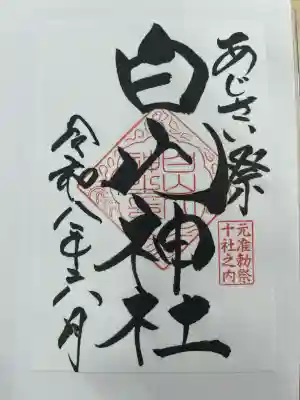 あじさい祭
白山神社
元准勅祭
十社之内
令和八年六月